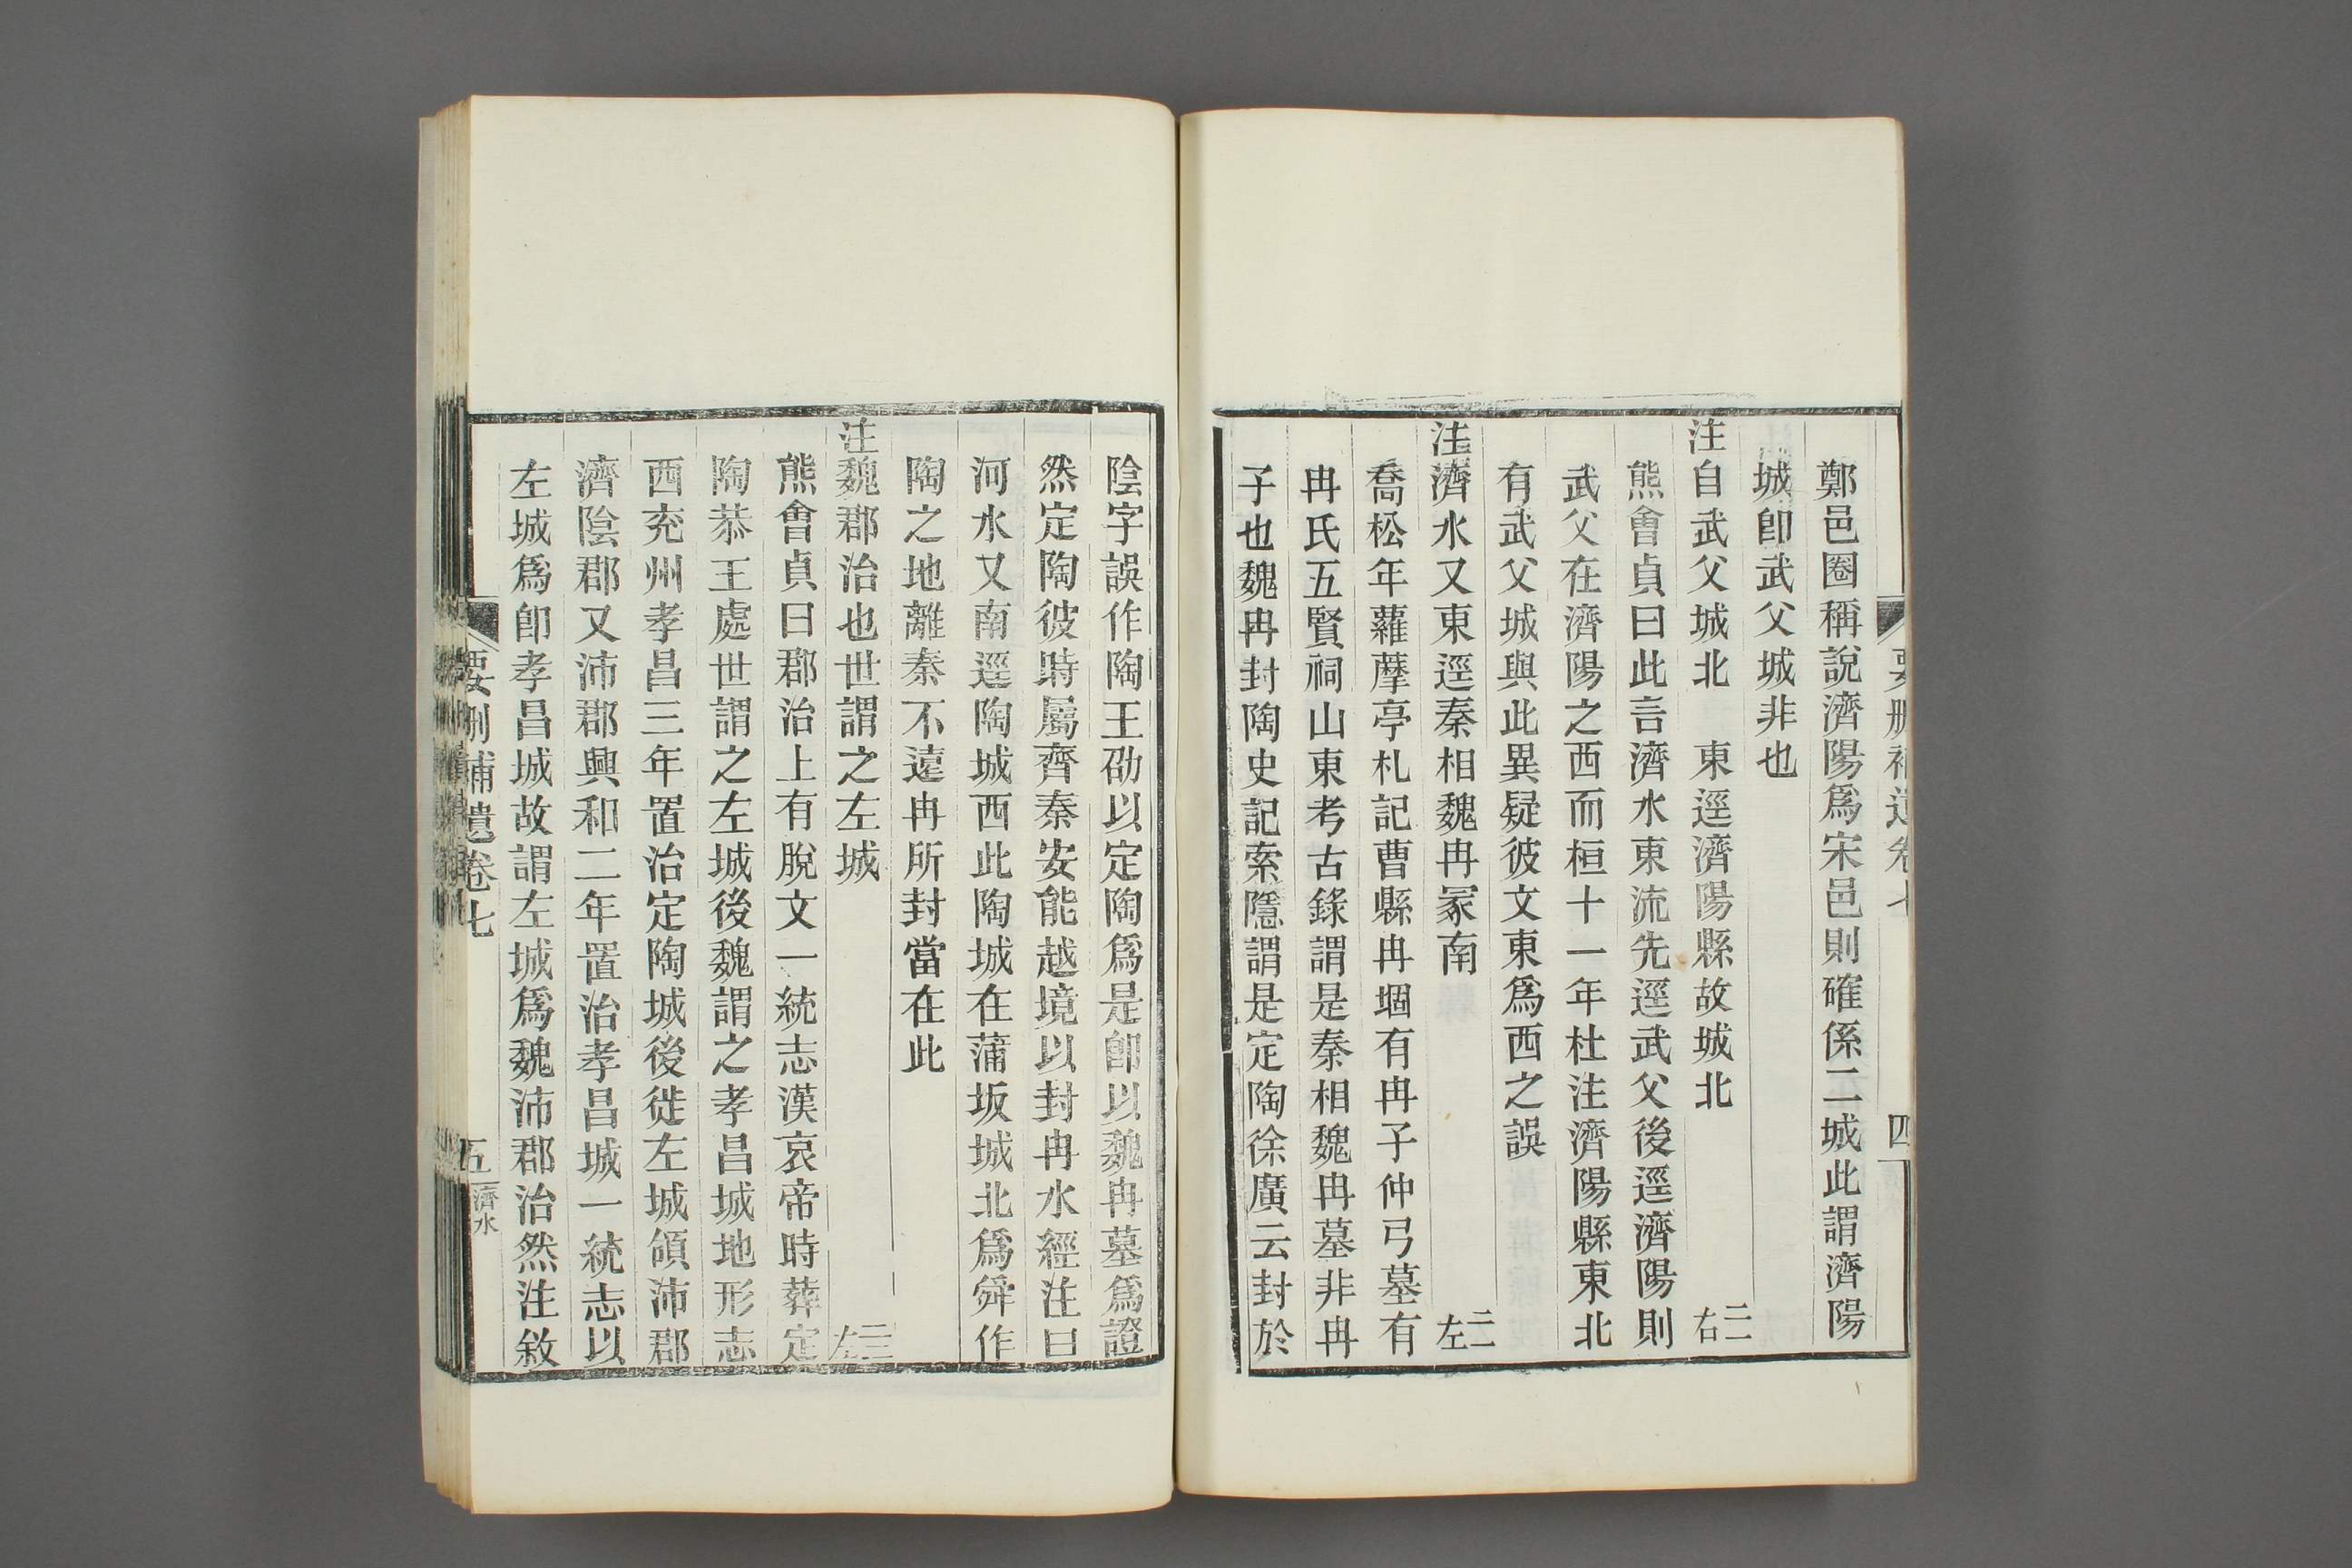 要刪補遺卷七
四
鄭邑圈稱說濟陽爲宋邑則確係二城此謂濟陽
城卽武父城非也
注自武父城北　東逕濟陽縣故城北　二一右
熊會貞曰此言濟水東流先逕武父後逕濟陽則
武父在濟陽之西而桓十一年杜注濟陽縣東北
有武父城與此異疑彼文東爲西之誤
注濟水又東逕秦相魏冉冢南　二一左
喬松年蘿藦亭札記曹縣冉堌有冉子仲弓墓有
冉氏五賢祠山東考古錄謂是秦相魏冉墓非冉
子也魏冉封陶史記索隱謂是定陶徐廣云封於
陰字誤作陶王劭以定陶爲是卽以魏冉墓爲證
然定陶彼時屬齊秦安能越境以封冉水經注曰
河水又南逕陶城西此陶城在蒲坂城北爲舜作
陶之地離秦不遠冉所封當在此
注魏郡治也世謂之左城　二三左
熊會貞曰郡治上有脫文一統志漢哀帝時葬定
陶恭王處世謂之左城後魏謂之孝昌城地形志
西兖州孝昌三年置治定陶城後徙左城領沛郡
濟陰郡又沛郡興和二年置治孝昌城一統志以
左城爲卽孝昌城故謂左城爲魏沛郡治然注敘
要刪補遺卷七
五
濟水